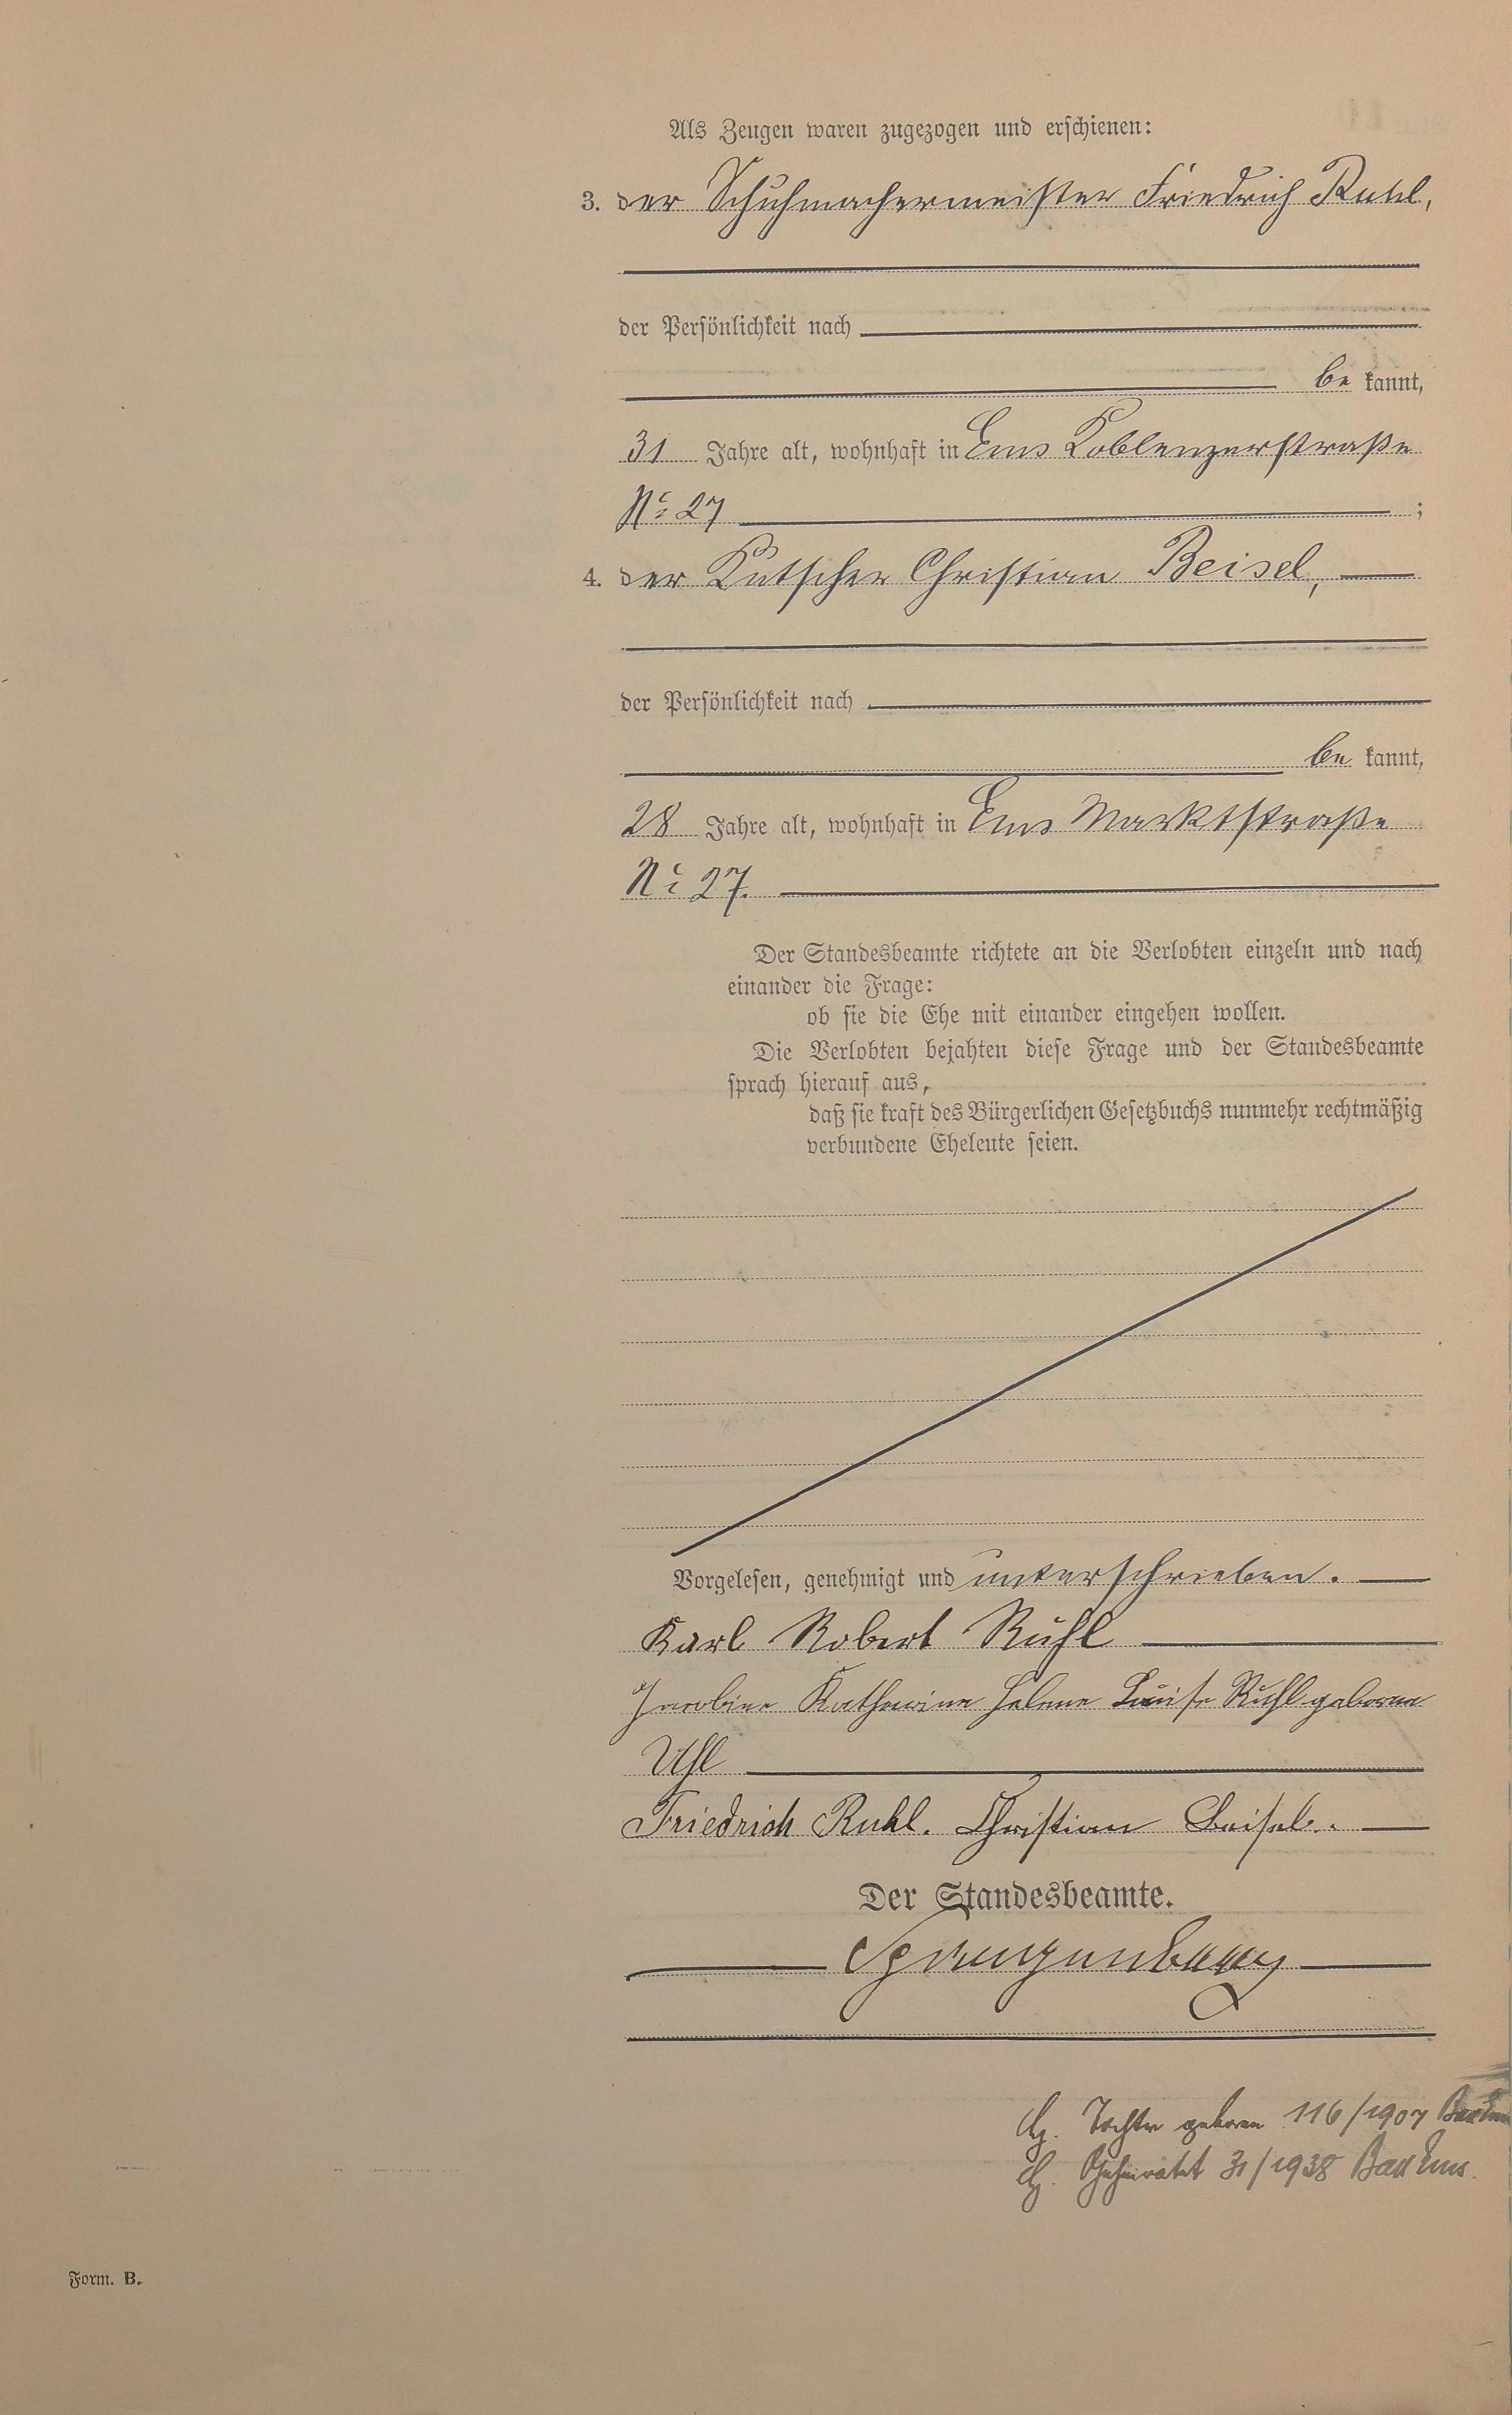 Als Zeugen waren zugezogen und erschienen:
3. der Schuhmachermeister Friedrich Ruhl,
der Persönlichkeit nach
be kannt,
31 Jahre alt, wohnhaft in Ems Koblenzerstraße
No 27 ;
4. der Kutscher Christian Beisel,
der Persönlichkeit nach
be kannt,
28 Jahre alt, wohnhaft in Ems Marktstraße
No 27.
Der Standesbeamte richtete an die Verlobten einzeln und nach
einander die Frage:
ob sie die Ehe mit einander eingehen wollen.
Die Verlobten bejahten diese Frage und der Standesbeamte
sprach hierauf aus,
daß sie kraft des Bürgerlichen Gesetzbuchs nunmehr rechtmäßig
verbundene Eheleute seien.
Vorgelesen, genehmigt und unterschrieben.
Karl Robert Ruhl
Katharine Helene Luise Ruhl geborene
Uhl
Friedrich Ruhl. Christian Beisel.
Der Standesbeamte.
Tochter geboren 116/1907 Bad Ems
31/1938 Bad Ems.
Form. B.